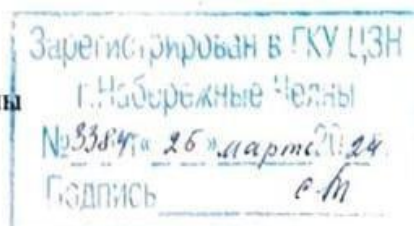 Зарегистрирован в ГКУ ЦЗН
ны г.Набережные Челны
№3384 « 26 » марта 2024
Подпись